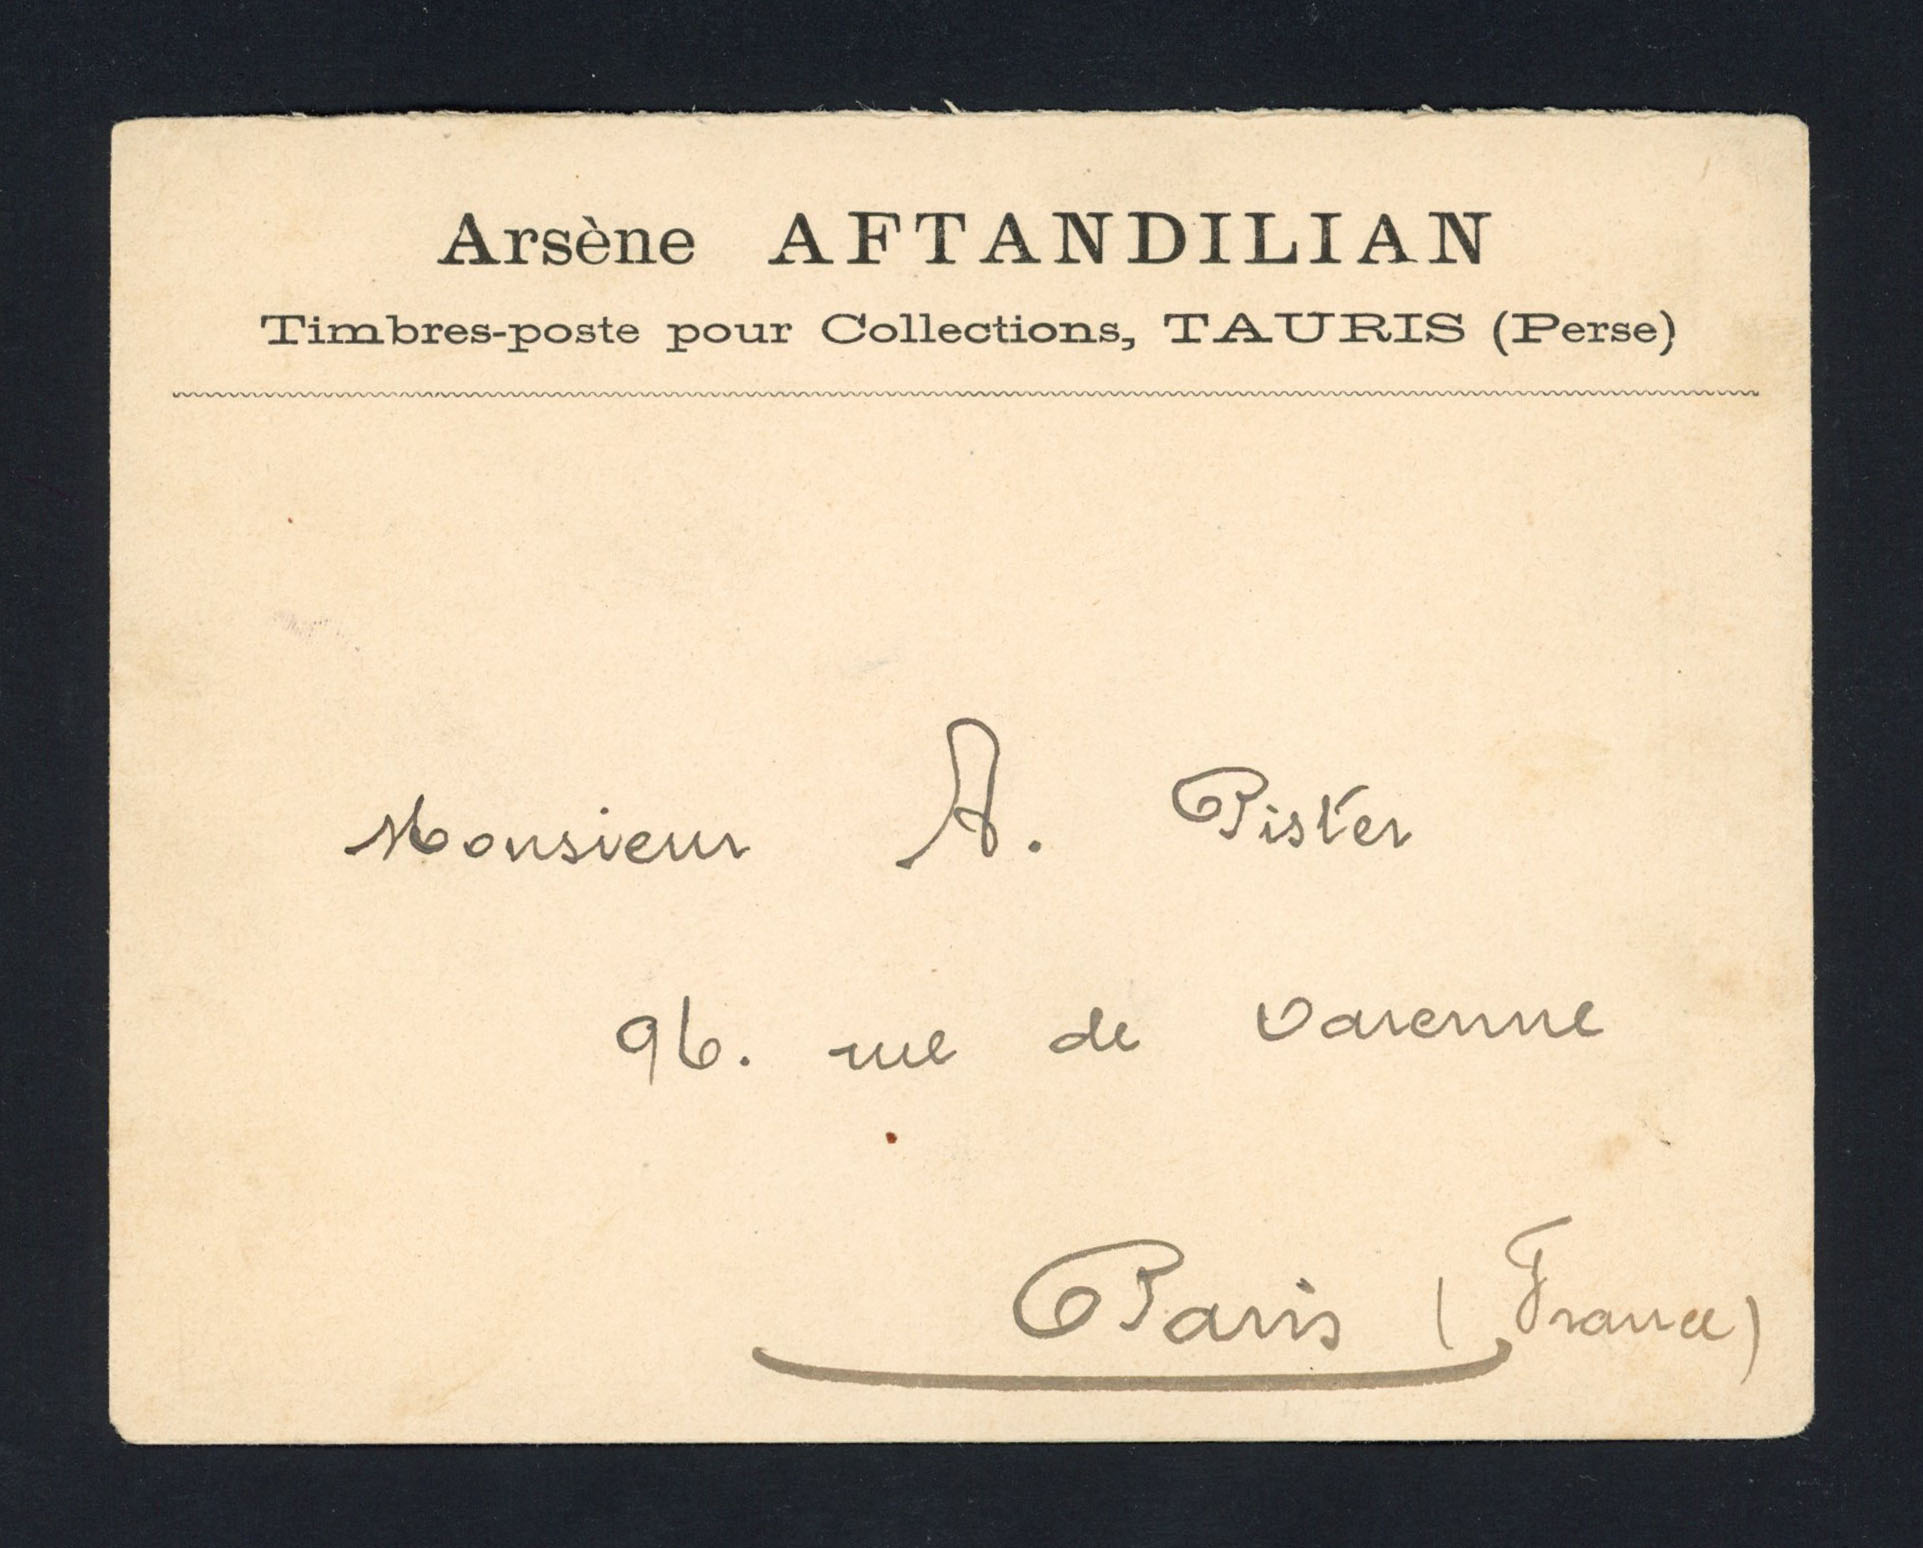 Arsène AFTANDILIAN
Timbres-poste pour Collections, TAURIS (Perse)
Monsieur A. Pister
96. rue de Varenne
Paris (France)